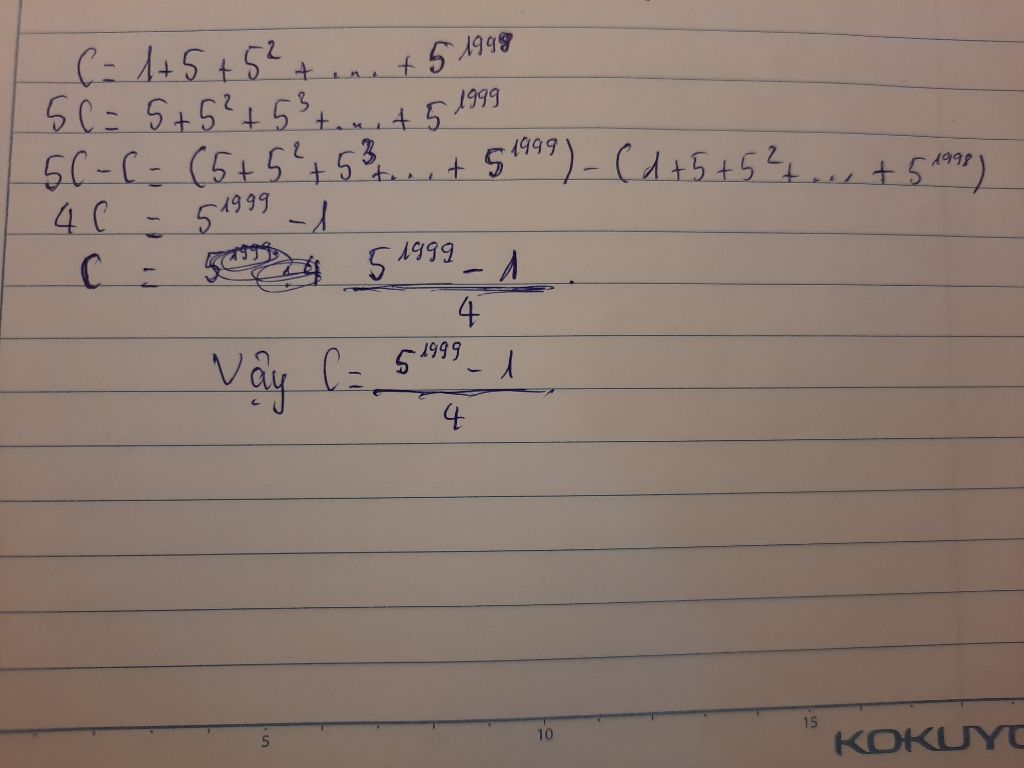 C = 1 + 5 + 5² + .... + 5¹⁹⁹⁸
5C = 5 + 5² + 5³ + .... + 5¹⁹⁹⁹
5C - C = (5 + 5² + 5³ + ... + 5¹⁹⁹⁹) - (1 + 5 + 5² + ... + 5¹⁹⁹⁸)
4C = 5¹⁹⁹⁹ - 1
C = (5¹⁹⁹⁹ - 1)/4.
Vậy C = (5¹⁹⁹⁹ - 1)/4
5 10 15
KOKUYO